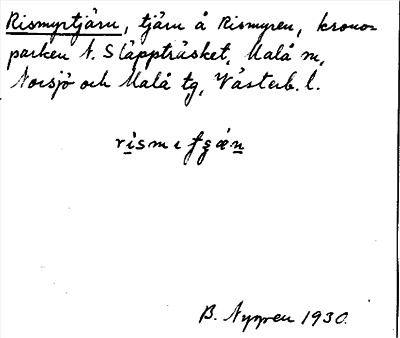 Rismyrtjärn, tjärn å Rismyren, krono-
parken N. Släppträsket, Malå sn,
Norsjö och Malå tg, Västerb. l.
B. Nygren 1930.